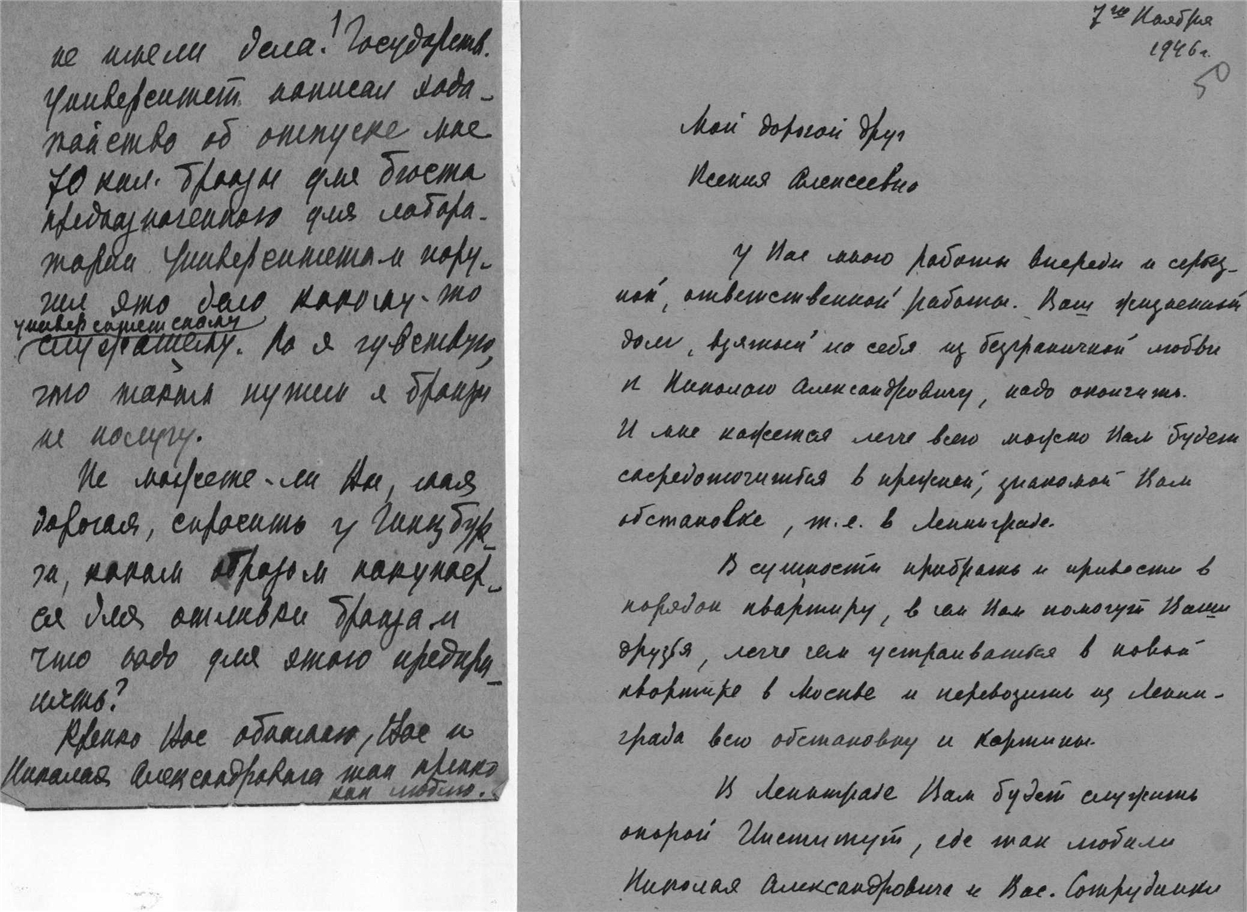 не имели дела! Государств.
Университет написал хода-
тайство об отпуске мне
70 кил. бронзы для бюста
предназначенного для лабора-
тории Университетом пору-
чил это дело какому-то
университетскому
служащему. Но я чувствую,
что таким путем я бронзы
не получу.
Не можете-ли Вы, моя
дорогая, спросить у Гинцбур-
га, каким образом покупает-
ся для отливки бронза и
что надо для этого предпри-
нять?
Крепко Вас обнимаю, Вас и
Николая Александровича так крепко
как люблю.
7го Ноября
1946 г.
50
Мой дорогой друг
Ксения Алексеевна
У Вас много работы впереди и серьез-
ной, ответственной работы. Ваш жизненный
долг, взятый на себя из безграничной любви
к Николаю Александровичу, надо окончить.
И мне кажется легче всего можно Вам будет
сосредоточиться в прежней, знакомой Вам
обстановке, т.е. в Ленинграде.
В сущности прибрать и привести в
порядок квартиру, в чем Вам помогут Ваши
друзья, легче чем устраиваться в новой
квартире в Москве и перевозить из Ленин-
града всю обстановку и картины.
В Ленинграде Вам будет служить
опорой Институт, где так любили
Николая Александровича и Вас. Сотрудники